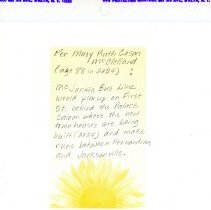 Per Mary Ruth Cason
McClelland
(age 88 in 2024) :
McJunkin Bus Line
would pick up on First
St. behind the Palace
Saloon where the new
townhouses are being
built (2024) and make
runs between Fernandina
and Jacksonville.